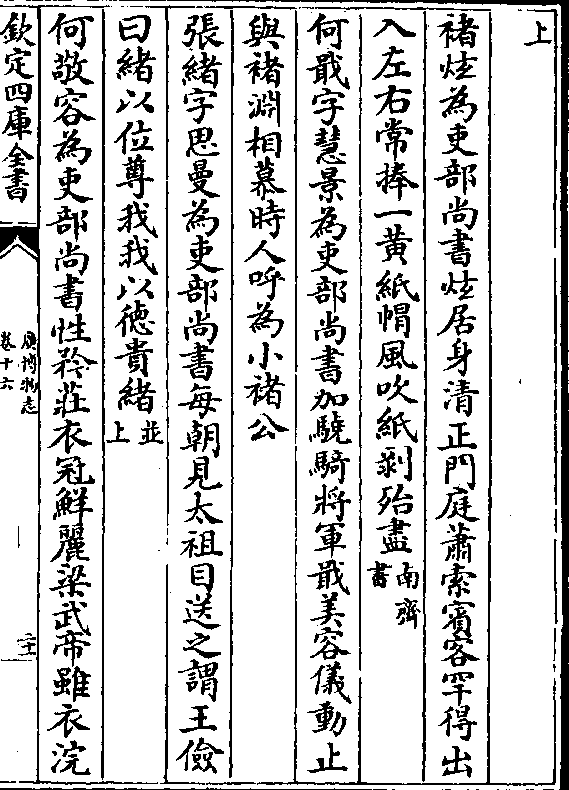 上
褚炫為吏部尚書炫居身清正門庭蕭索賓客罕得出
入左右常捧一黃紙帽風吹紙剥殆盡南齊書
何戢字慧景為吏部尚書加驍騎將軍戢美容儀動止
與褚淵相慕時人呼為小褚公
張緒字思曼為吏部尚書每朝見太祖目送之謂王儉
曰緒以位尊我我以德貴緒並上
何敬容為吏部尚書性矜莊衣冠鮮麗梁武帝雖衣浣
欽定四庫全書
廣博物志
卷十六
二十